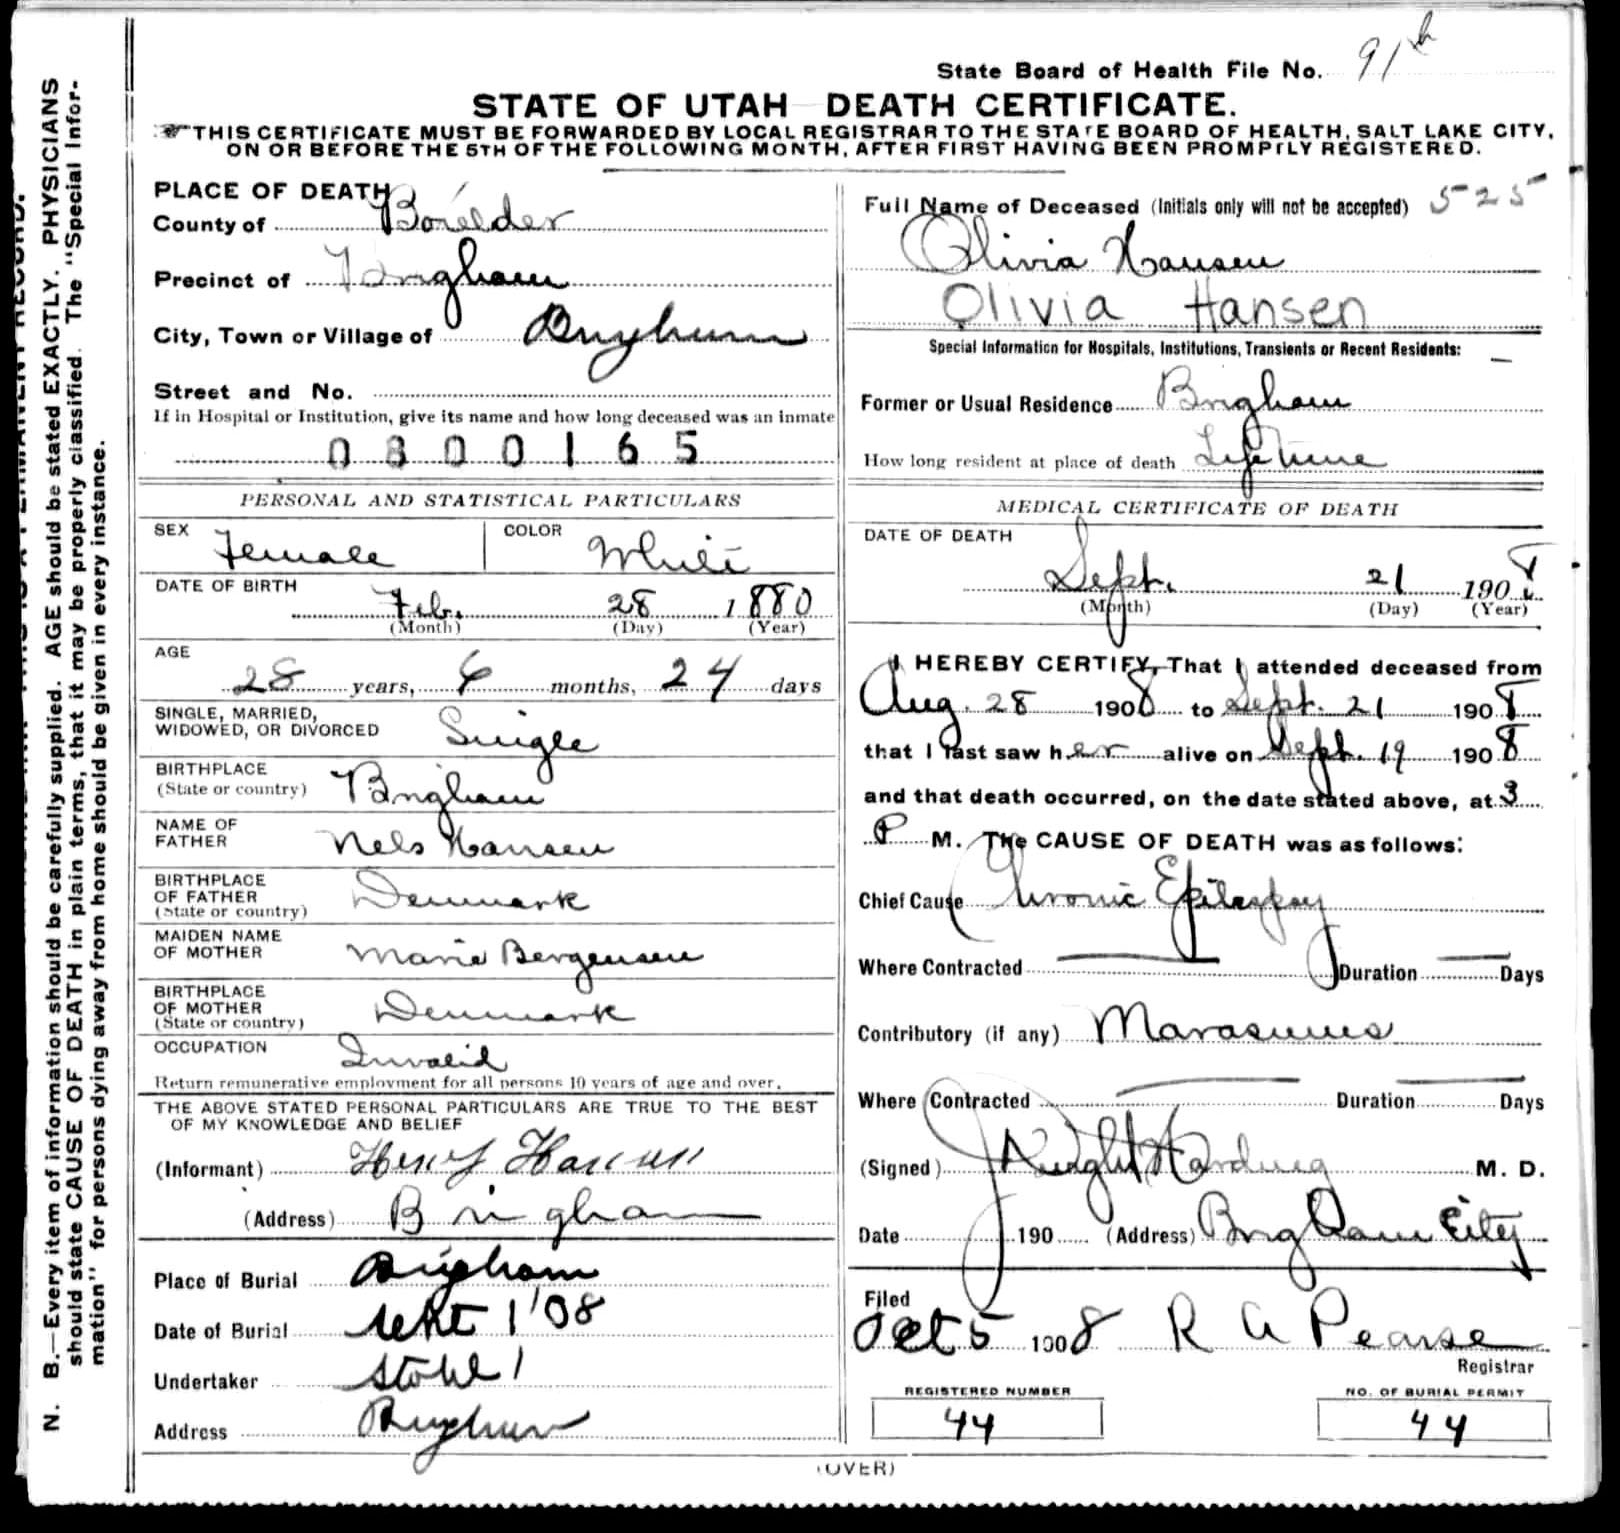 State Board of Health File No. 91
STATE OF UTAH DEATH CERTIFICATE.
THIS CERTIFICATE MUST BE FORWARDED BY LOCAL REGISTRAR TO THE STATE BOARD OF HEALTH, SALT LAKE CITY,
ON OR BEFORE THE 5TH OF THE FOLLOWING MONTH, AFTER FIRST HAVING BEEN PROMPTLY REGISTERED.
N. B.—Every item of information should be carefully supplied. AGE should be stated EXACTLY. PHYSICIANS
should state CAUSE OF DEATH in plain terms, that it may be properly classified. The "Special Infor-
mation" for persons dying away from home should be given in every instance.
PLACE OF DEATH
County of Boxelder
Precinct of Brigham
City, Town or Village of Brigham
Street and No.
If in Hospital or Institution, give its name and how long deceased was an inmate
0800165
PERSONAL AND STATISTICAL PARTICULARS
SEX Female COLOR White
DATE OF BIRTH
Feb. 28 1880
(Month) (Day) (Year)
AGE
28 years, 6 months, 24 days
SINGLE, MARRIED,
WIDOWED, OR DIVORCED Single
BIRTHPLACE
(State or country) Brigham
NAME OF
FATHER Nels Hansen
BIRTHPLACE
OF FATHER
(State or country) Denmark
MAIDEN NAME
OF MOTHER Marie Bergensen
BIRTHPLACE
OF MOTHER
(State or country) Denmark
OCCUPATION Invalid
Return remunerative employment for all persons 10 years of age and over.
THE ABOVE STATED PERSONAL PARTICULARS ARE TRUE TO THE BEST
OF MY KNOWLEDGE AND BELIEF
(Informant) Henry Hansen
(Address) Brigham
Place of Burial Brigham
Date of Burial 1 '08
Undertaker Stohl
Address Brigham
Full Name of Deceased (Initials only will not be accepted) 525
Olivia Hansen
Olivia Hansen
Special Information for Hospitals, Institutions, Transients or Recent Residents:
Former or Usual Residence Brigham
How long resident at place of death Life time
MEDICAL CERTIFICATE OF DEATH
DATE OF DEATH
Sept. 21 1908
(Month) (Day) (Year)
I HEREBY CERTIFY, That I attended deceased from
Aug. 28 1908 to Sept. 21 1908
that I last saw her alive on Sept. 19 1908
and that death occurred, on the date stated above, at 3
P M. The CAUSE OF DEATH was as follows:
Chief Cause Chronic Epilepsy
Where Contracted Duration Days
Contributory (if any) Marasmus
Where Contracted Duration Days
(Signed) Harding M. D.
Date 190 (Address) Brigham City
Filed
Oct 5 1908 R A Pearse
Registrar
REGISTERED NUMBER
44
NO. OF BURIAL PERMIT
44
(OVER)